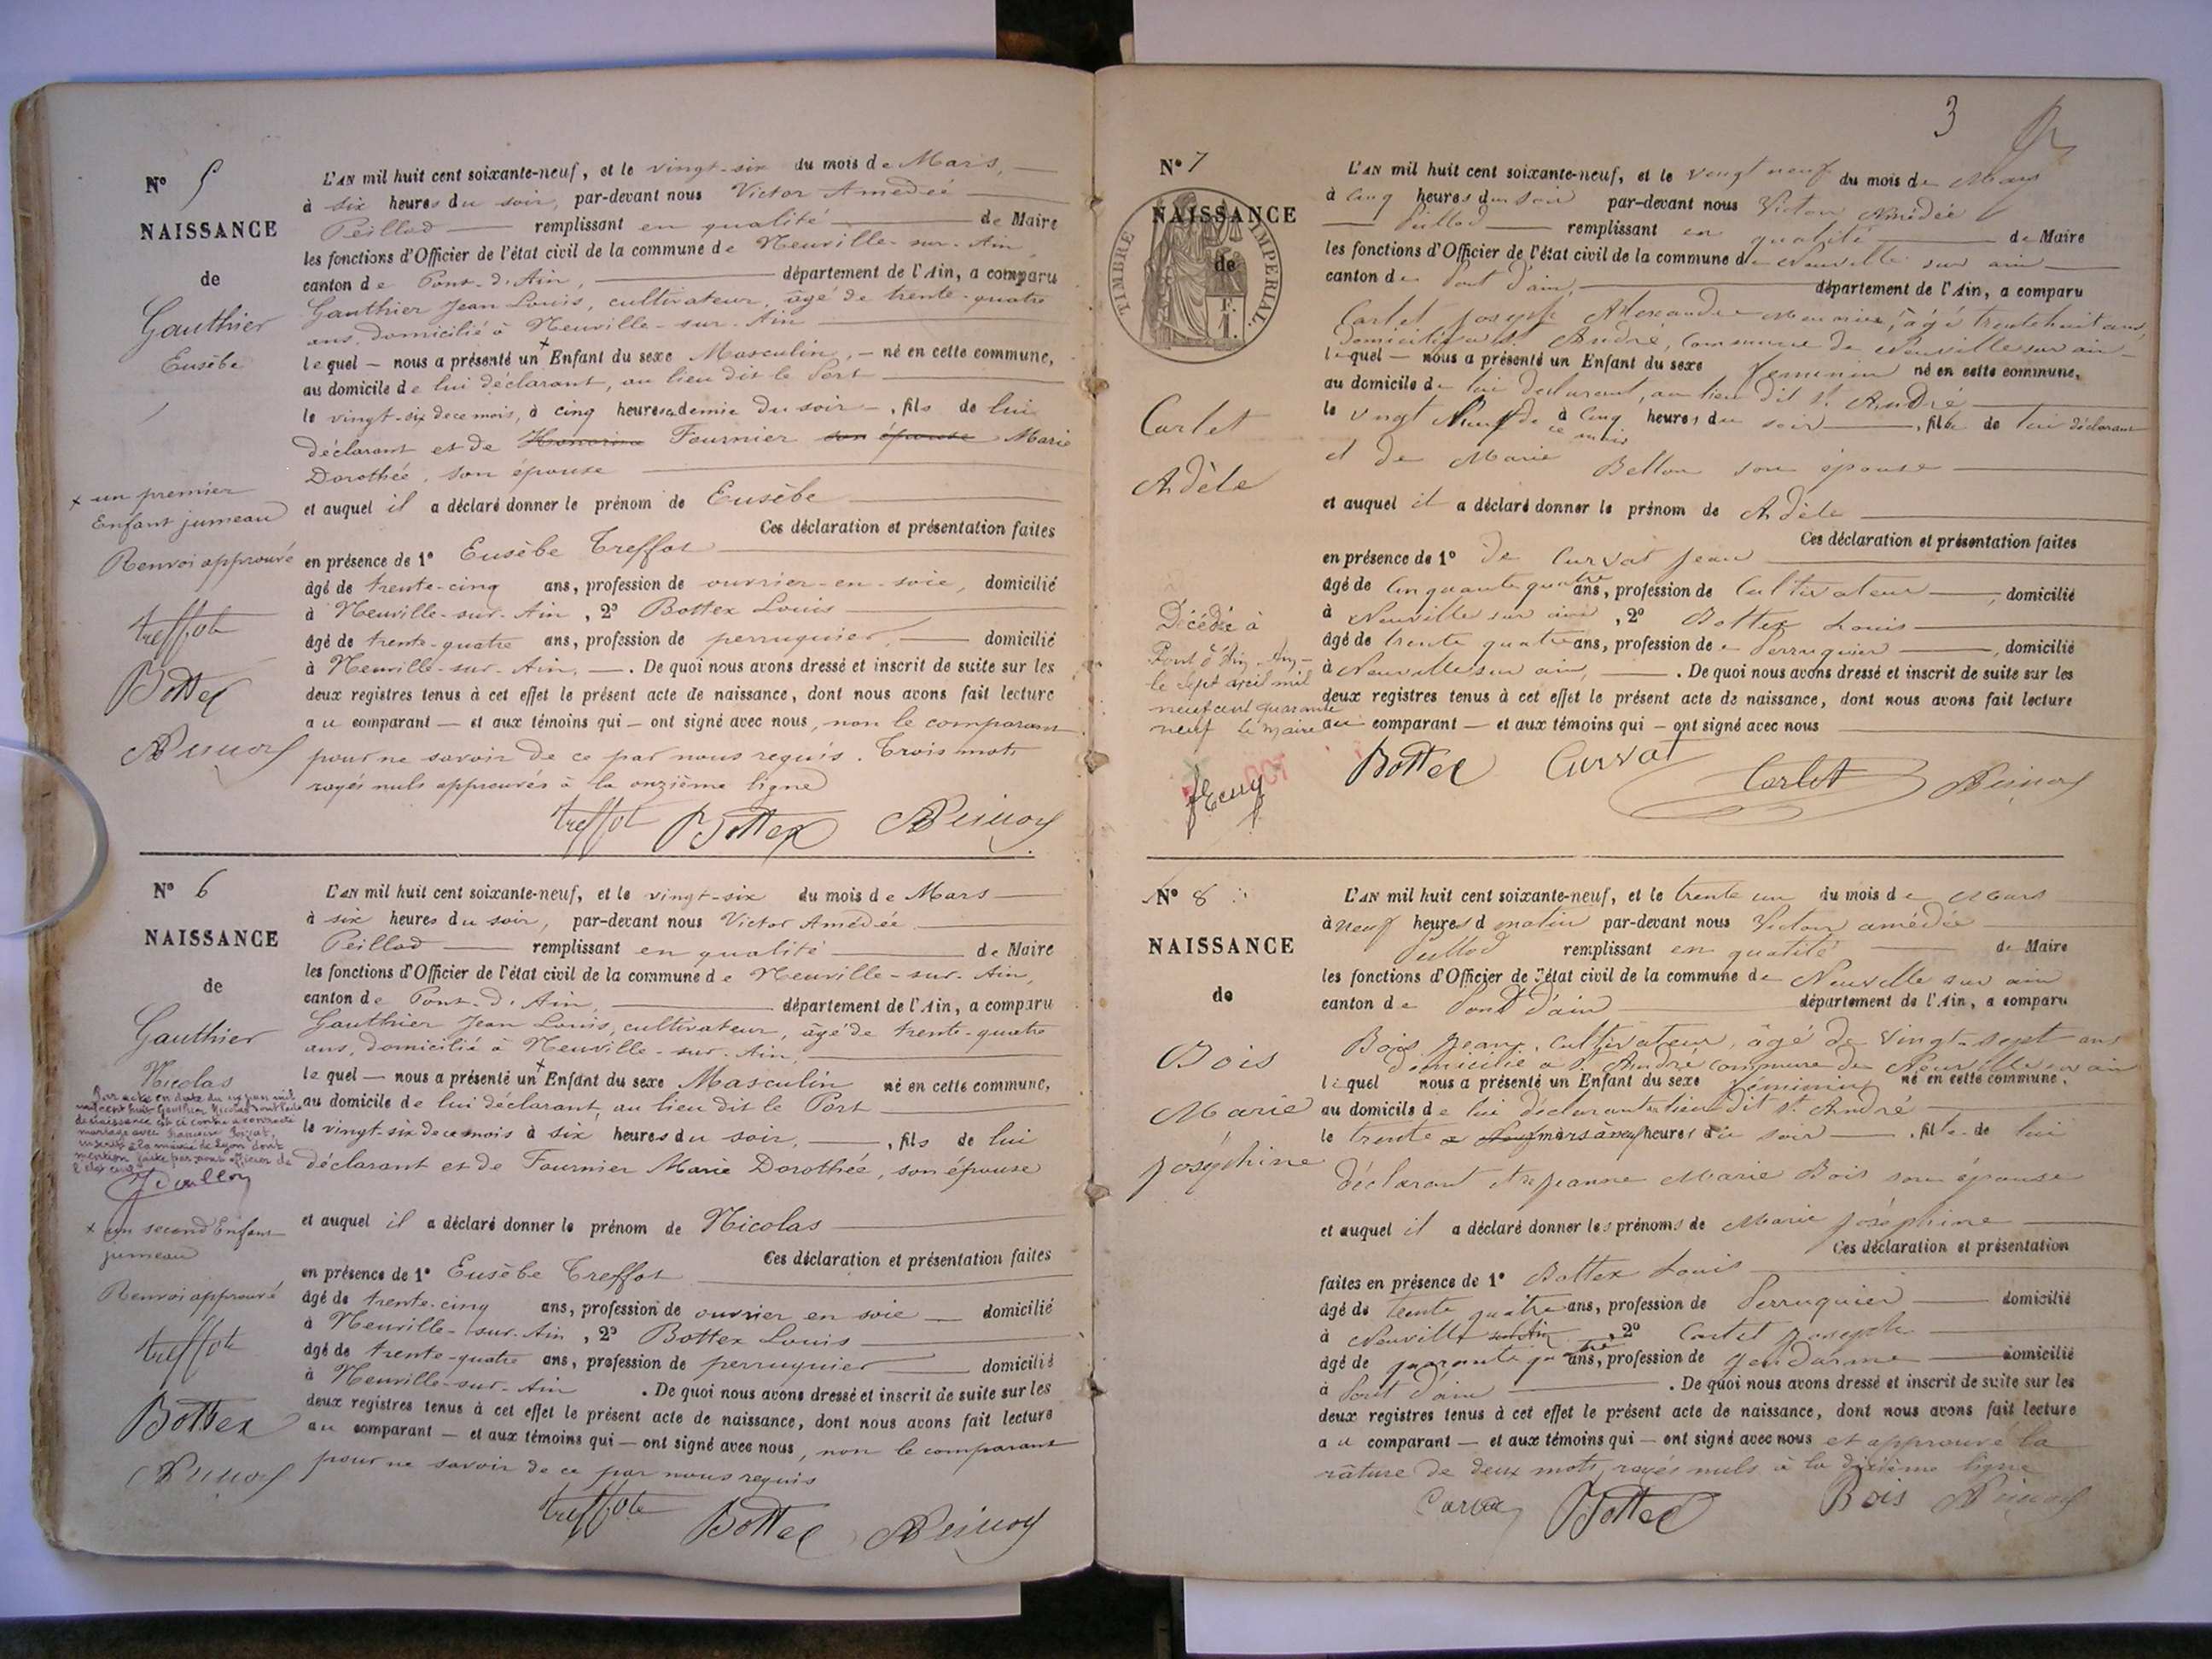 N° 5
NAISSANCE
de
Gauthier
Eusèbe
x un premier
Enfant jumeau
Renvoi approuvé
treffot
Bottex
L'AN mil huit cent soixante-neuf, et le vingt-six du mois de Mars,
à six heures du soir, par-devant nous Victor Amédée
Peillod remplissant en qualité de Maire
les fonctions d'Officier de l'état civil de la commune de Neuville-sur-Ain
canton de Pont-d'Ain, département de l'Ain, a comparu
Gauthier Jean Louis, cultivateur, âgé de trente-quatre
ans, domicilié à Neuville-sur-Ain
lequel — nous a présenté un x Enfant du sexe Masculin, — né en cette commune,
au domicile de lui déclarant, au lieu dit le Port
le vingt-six de ce mois, à cinq heures & demie du soir —, fils de lui
déclarant et de Honorine Fournier son épouse Marie
Dorothée, son épouse
et auquel il a déclaré donner le prénom de Eusèbe
Ces déclaration et présentation faites
en présence de 1° Eusèbe Treffot
âgé de trente-cinq ans, profession de ouvrier-en-soie, domicilié
à Neuville-sur-Ain, 2° Bottex Louis
âgé de trente-quatre ans, profession de perruquier, domicilié
à Neuville-sur-Ain, —. De quoi nous avons dressé et inscrit de suite sur les
deux registres tenus à cet effet le présent acte de naissance, dont nous avons fait lecture
au comparant — et aux témoins qui — ont signé avec nous, non le comparant
pour ne savoir de ce par nous requis. Trois mots
rayés nuls approuvés à la onzième ligne
treffot Bottex
N° 6
NAISSANCE
de
Gauthier
Nicolas
x un second Enfant
jumeau
Renvoi approuvé
treffot
Bottex
L'AN mil huit cent soixante-neuf, et le vingt-six du mois de Mars
à six heures du soir, par-devant nous Victor Amédée
Peillod remplissant en qualité de Maire
les fonctions d'Officier de l'état civil de la commune de Neuville-sur-Ain,
canton de Pont-d'Ain, département de l'Ain, a comparu
Gauthier Jean Louis, cultivateur, âgé de trente-quatre
ans, domicilié à Neuville-sur-Ain,
lequel — nous a présenté un x Enfant du sexe Masculin né en cette commune,
au domicile de lui déclarant, au lieu dit le Port
le vingt-six de ce mois à six heures du soir, fils de lui
déclarant et de Fournier Marie Dorothée, son épouse
et auquel il a déclaré donner le prénom de Nicolas
Ces déclaration et présentation faites
en présence de 1° Eusèbe Treffot
âgé de trente-cinq ans, profession de ouvrier en soie — domicilié
à Neuville-sur-Ain, 2° Bottex Louis
âgé de trente-quatre ans, profession de perruquier domicilié
à Neuville-sur-Ain. De quoi nous avons dressé et inscrit de suite sur les
deux registres tenus à cet effet le présent acte de naissance, dont nous avons fait lecture
au comparant — et aux témoins qui — ont signé avec nous, non le comparant
pour ne savoir de ce par nous requis
treffot Bottex
3
N° 7
NAISSANCE
de
TIMBRE IMPERIAL.
F.
1.
Carlet
Adèle
Décédée à
Pont d'Ain Ain —
le sept avril mil
neuf cent quarante
neuf le maire
L'AN mil huit cent soixante-neuf, et le vingt neuf du mois de Mars
à cinq heures du soir par-devant nous Victor Amédée
Peillod remplissant en qualité de Maire
les fonctions d'Officier de l'état civil de la commune de Neuville sur ain
canton de Pont d'ain, département de l'Ain, a comparu
Carlet Joseph Alexandre, âgé trente huit ans,
domicilié à St. André, commune de Neuville sur ain
lequel — nous a présenté un Enfant du sexe féminin né en cette commune,
au domicile de lui déclarant, au lieu dit St. André
le vingt Neuf de ce mois à cinq heures du soir, fille de lui déclarant
et de Marie Bellon son épouse
et auquel il a déclaré donner le prénom de Adèle
Ces déclaration et présentation faites
en présence de 1° de Curvat Jean
âgé de cinquante quatre ans, profession de Cultivateur, domicilié
à Neuville sur ain, 2° Bottex Louis
âgé de trente quatre ans, profession de Perruquier, domicilié
à Neuville sur ain, . De quoi nous avons dressé et inscrit de suite sur les
deux registres tenus à cet effet le présent acte de naissance, dont nous avons fait lecture
au comparant — et aux témoins qui — ont signé avec nous
Bottex Curvat Carlet
N° 8
NAISSANCE
de
Bois
Marie
Joséphine
L'AN mil huit cent soixante-neuf, et le trente un du mois de Mars
à neuf heures d matin par-devant nous Victor amédée
Peillod remplissant en qualité de Maire
les fonctions d'Officier de l'état civil de la commune de Neuville sur ain
canton de Pont d'ain département de l'Ain, a comparu
Bois Jean, cultivateur, âgé de vingt-sept ans
domicilié à St André commune de Neuville sur ain
lequel nous a présenté un Enfant du sexe féminin né en cette commune,
au domicile de lui déclarant au lieu dit St. André
le trente mars à neuf heures du soir, fille de lui
déclarant et de Jeanne Marie Bois son épouse
et auquel il a déclaré donner les prénoms de Marie Joséphine
Ces déclaration et présentation
faites en présence de 1° Bottex Louis
âgé de trente quatre ans, profession de Perruquier domicilié
à Neuville sur Ain, 2° Carlet Joseph
âgé de quarante quatre ans, profession de gendarme domicilié
à Pont d'ain. De quoi nous avons dressé et inscrit de suite sur les
deux registres tenus à cet effet le présent acte de naissance, dont nous avons fait lecture
au comparant — et aux témoins qui — ont signé avec nous et approuvé la
râture de deux mots rayés nuls à la dixième ligne
Bottex Bois